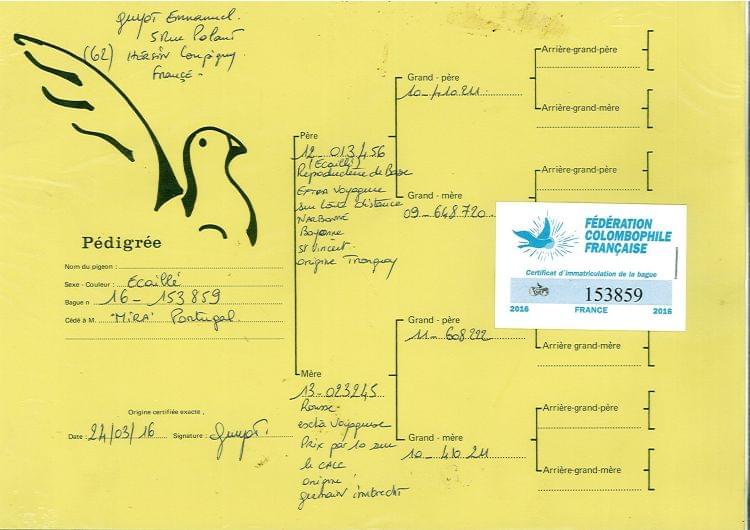 Guyot Emmanuel.
5 Rue
(62) HERSIN Coupigny
France -
Pédigrée
Nom du pigeon :
Sexe - Couleur : Ecaillé
Bague n 16 - 153859
Cédé à M. "MIRA" Portugal.
Origine certifiée exacte,
Date : 24/03/16 Signature : Guyot
Père
12 - 013456
(Ecaillé)
Reproducteur de Base
Extra Voyageuse
sur toute distance
NARBONNE
Bayonne
St Vincent
origine Tronquoy
Mère
13 - 023245
Rousse -
Voyageuse
Prix par 10 sur
le CALC
origine
germain imbrecht
Grand - père
10 - 410 211
Grand - mère
09 - 648 720
Grand - père
11 - 608222
Grand - mère
10 - 410 211
Arrière-grand-père
Arrière-grand-mère
Arrière-grand-père
FÉDÉRATION
COLOMBOPHILE
FRANÇAISE
Certificat d'immatriculation de la bague
153859
2016 FRANCE 2016
Arrière grand-mère
Arrière-grand-père
Arrière-grand-mère